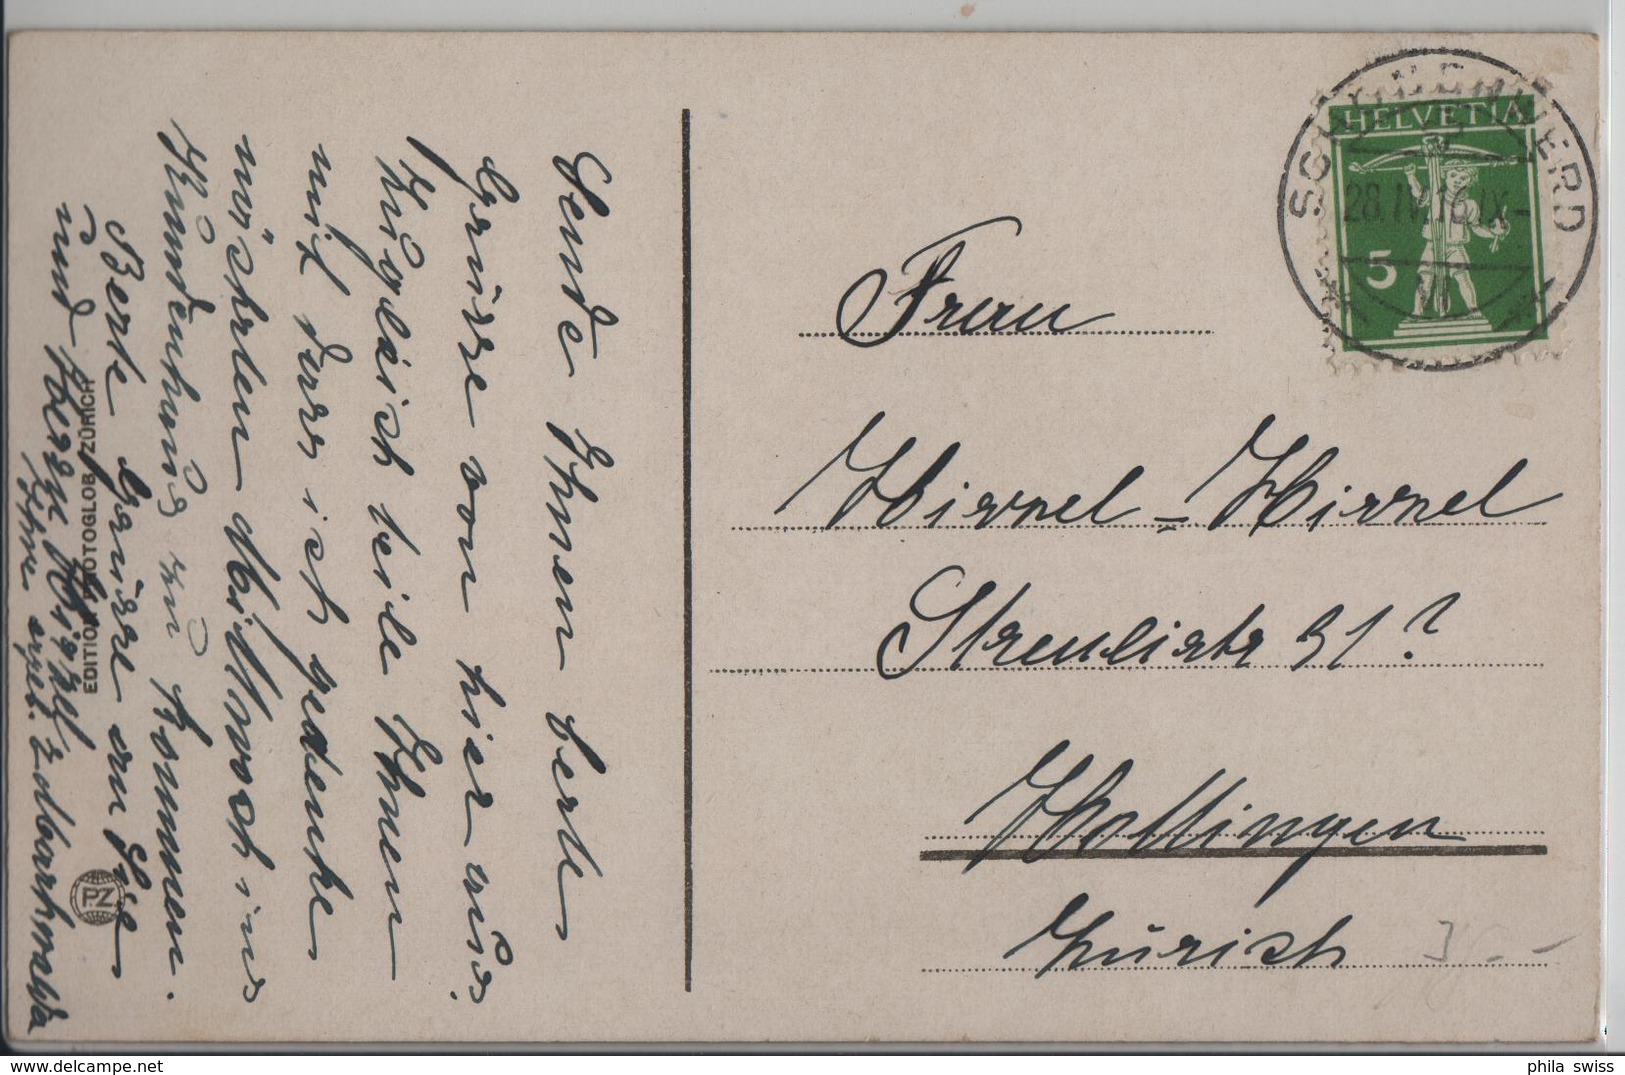 Sende Ihnen beste
Grüsse von hier aus.
Zugleich teile Ihnen
mit dass ich gedenke
nächsten Mittwoch ins
Kundenhaus zu kommen.
Beste Grüsse an Sie
und Herrn Hirzel
Ihre ergeb.
EDITION PHOTOGLOB ZÜRICH
PZ
HELVETIA
5
SCHÖNENWERD
28.IV.16.IX-
VI
Frau
Hirzel-Hirzel
Streulistr 31?
Hottingen
Zürich
phila swiss